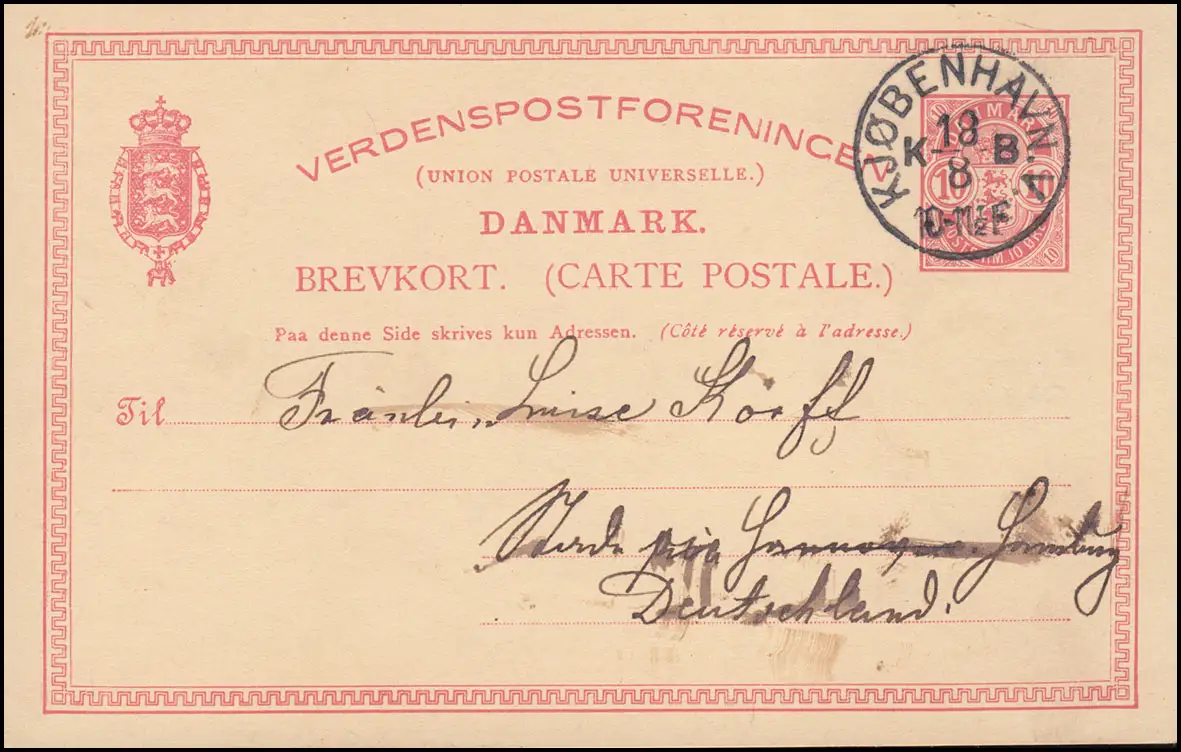 VERDENSPOSTFORENINGEN
(UNION POSTALE UNIVERSELLE.)
DANMARK.
BREVKORT. (CARTE POSTALE.)
Paa denne Side skrives kun Adressen. (Côté réservé à l'adresse.)
KJØBENHAVN V.
18
K-B.
8
10-11½F
10 10
Til Fräulein Luise Korff
Stade Hannover. Hamburg
Deutschland.